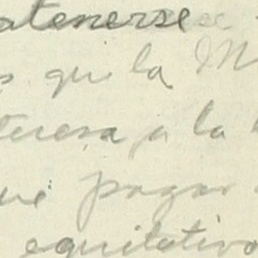 atenerse
s que la M
teresa, a la
que pagar
equitativo